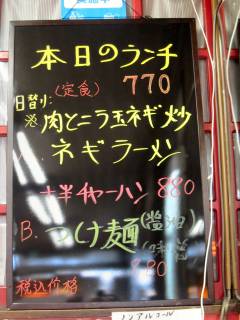 本日のランチ
(定食) 770
日替り:
※肉とニラ玉ネギ炒
ネギラーメン
+半チャーハン 880
B. つけ麺(醤油)
880
税込価格
ノンアルコール